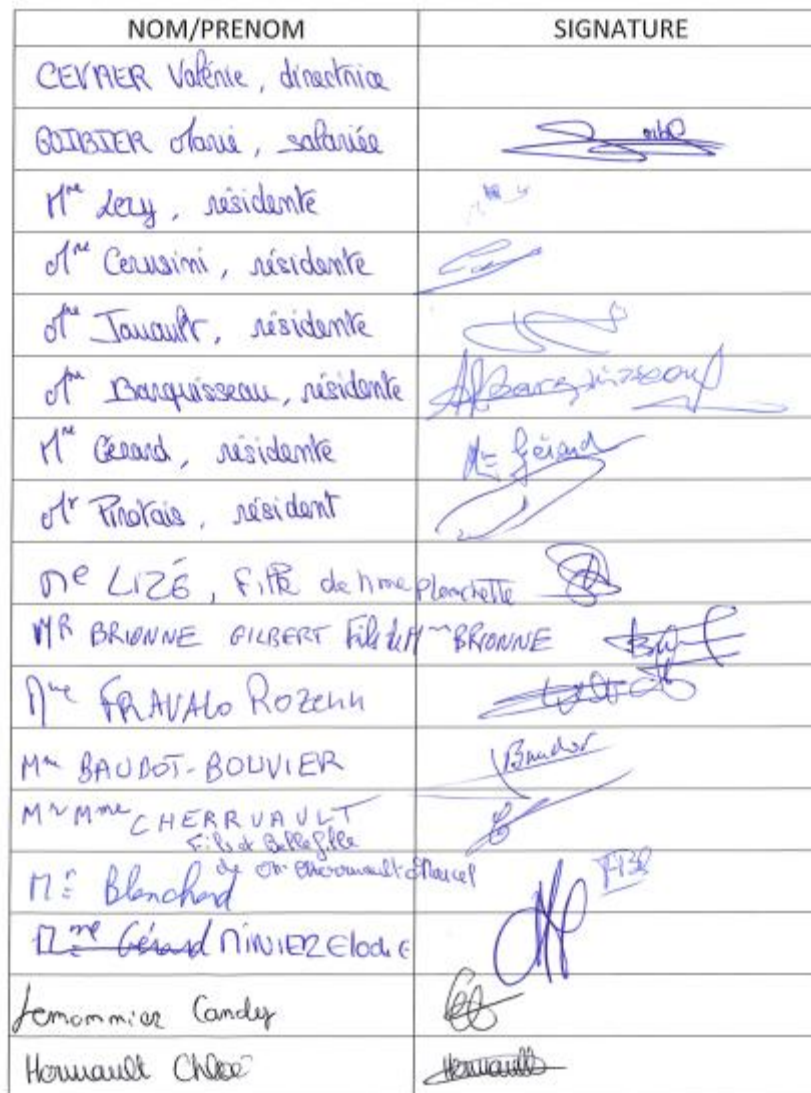 NOM/PRENOM SIGNATURE
CEVAER Valérie, directrice
QUIBIER Marie, salariée
Mme Lecy, résidente
Mme Cerusini, résidente
Mme Jouault, résidente
Mme Barquisseau, résidente Barquisseau
Mme Gérard, résidente Me Gérard
Mr Pinotais, résident
Me LIZÉ, Fille de Mme Planchette
MR BRIONNE GILBERT Fils de Mme BRIONNE
Mme FRAVALO Rozenn
Mme BAUDOT-BOUVIER Baudot
Mr Mme CHERRUAULT
Fils et Belle fille
de Mr Cherruault Marcel
Me Blanchard FBl
Mme Gérard MINIER Elodie
Lemonnier Candy
Hermault Chloé Hermault